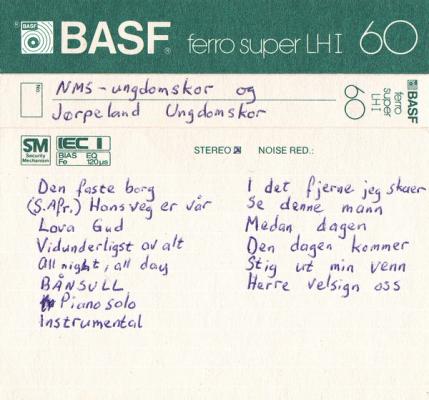 BASF
BASF® ferro super LH I 60
No.:
NMS-ungdomskor og
Jørpeland Ungdomskor
60
ferro super LH I
BASF
SM
Security Mechanism
IEC I
BIAS EQ
Fe 120µs
STEREO NOISE RED.:
Den faste borg
(S.Afr.) Hans veg er vår
Lova Gud
Vidunderligst av alt
All night, all day
BÅNSULL
Piano solo
Instrumental
I det fjerne jeg skaer
Se denne mann
Medan dagen
Den dagen kommer
Stig ut min venn
Herre velsign oss